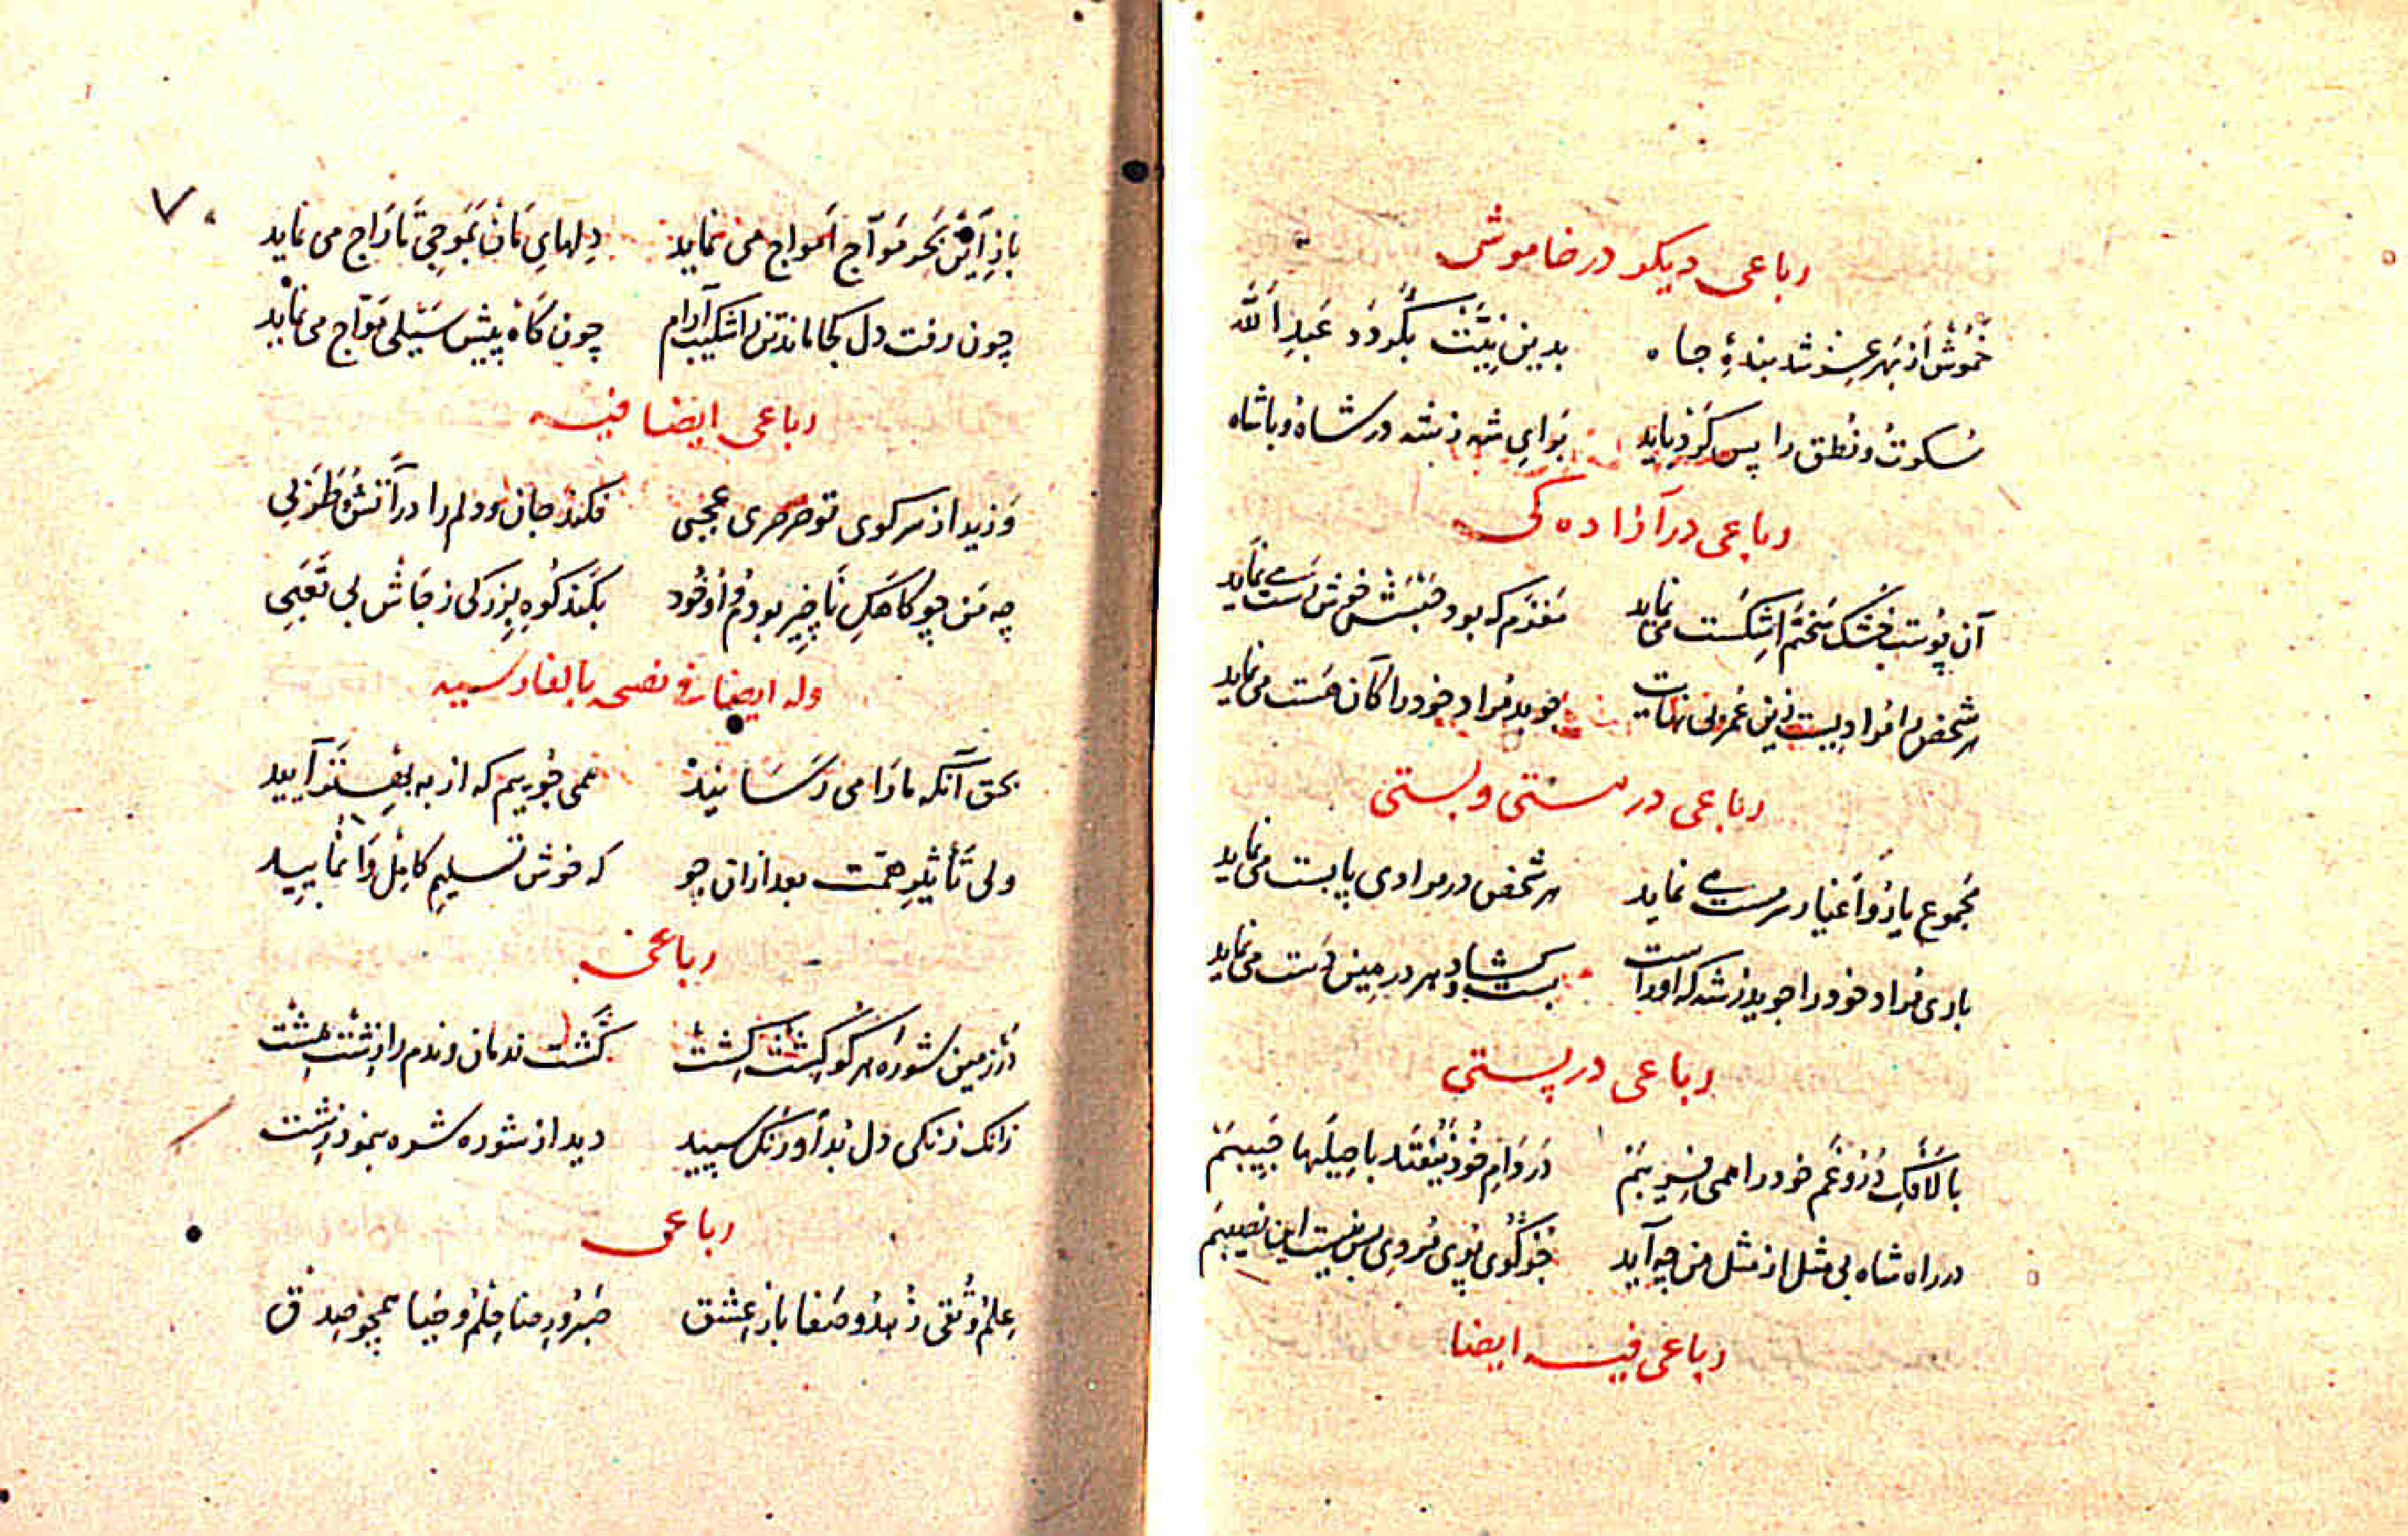 رباعی دیکر در خاموشی
خموش از بهر عز شد بندهٔ جاه بدین نیت نکردد عبد الله
سکوت و نطق را پس کرد باید برای شه نه در شاه و باشاه
رباعی در آزاده کی
آن پوست خشک سختم اشکست می نماید مغزم که بود جنبش خوش رست می نماید
هر شخص را مراد بیست زین عمر بی نهایت جوید مراد خود را کان هست می نماید
رباعی در مستی و پستی
مجموع یار و اغیار سرمست می نماید هر شخص در مرادی پابست می نماید
باری مراد خود را جوید ز شه که او راست بست و کشاد هر در همین دست می نماید
رباعی در پستی
با لابهٔ دروغم خود را همی فریبم در دام خود بیفتد با حیلها حبیبم
در راه شاه بی مثل از مثل من چه آید جز کوی پوی مردی بس نیست این نصیبم
رباعی فیه ایضا
۷۰
باز این بحر مواج امواج می نماید دلهای مان بموجی تاراج می نماید
چون رفت دل کجا ماند تن را شکیب آرام چون کاه پیش سیلی مواج می نماید
رباعی ایضا فیه
وزید از سر کوی تو صرصری عجبی فکند جان و دلم را در آتش طربی
چه من چو کاهک ناچیز بودم او خود بکند کوه بزرکی ز جاش بی تعبی
وله ایضا فی نصحه بالفارسیه
بحق آنکه ما را می رساند نمی جوییم که از به بتر آیید
ولی تأثیر همت بعد ازان جو که خوش تسلیم کامل وا نمایید
رباعی
در زمین شوره هر کو کشت کشت کشت ندمان و ندم را زشت هشت
زانک زنکی دل بد او رنک سپید دید از شوره شوه بنمود زشت
رباعی
علم و تقی زهد و صفا باز عشق صبر و رضا حلم و حیا همچو صدق